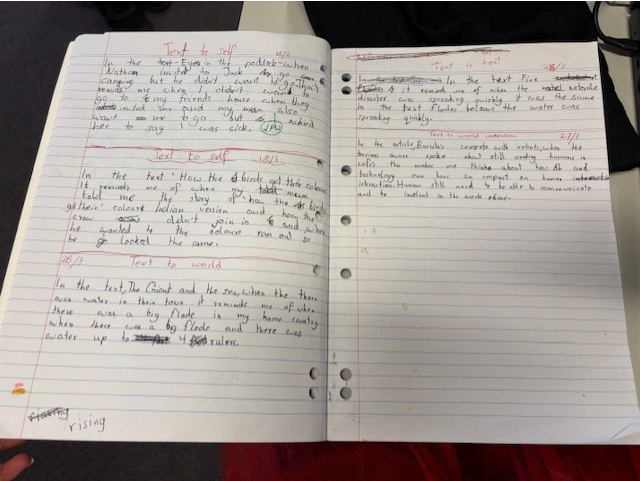 Text to self 15/2
In the Eyes in the paddock when
Nathan invited to Jack go
camping but he didn't want to go. That
reminds me when I didn't want
go to my friends house when they
invited and my mum also
want me to go but I asked
her to say I was sick.
Text to self 18/3
In the text How the birds got their colours
It reminds me of when my mum
told me the story of how the birds
got their colours Indian version and how the
crow didn't join in and when
he wanted to the colours ran out so
he looked the same.
26/3 Text to world
In the text, The Giant and the sea, when the there
was water in their town it reminds me of when
there was a big flode in my home country
when there was a big flode and there was
water up to 4 rulers.
rising
Text to text 25/3
In the text Five
it remind me of when the naterale
disaster was spreading quickly it was the same
in the text Flodes because the water was
spreading quickly.
Text to world connection 27/3
In the article, Baristas compete with robots, when the
barista spoke about still needing humans in
cafes this makes me think about how Ab and
technology can have an impact on human
interaction. Human still need to be able to communicate
and to be